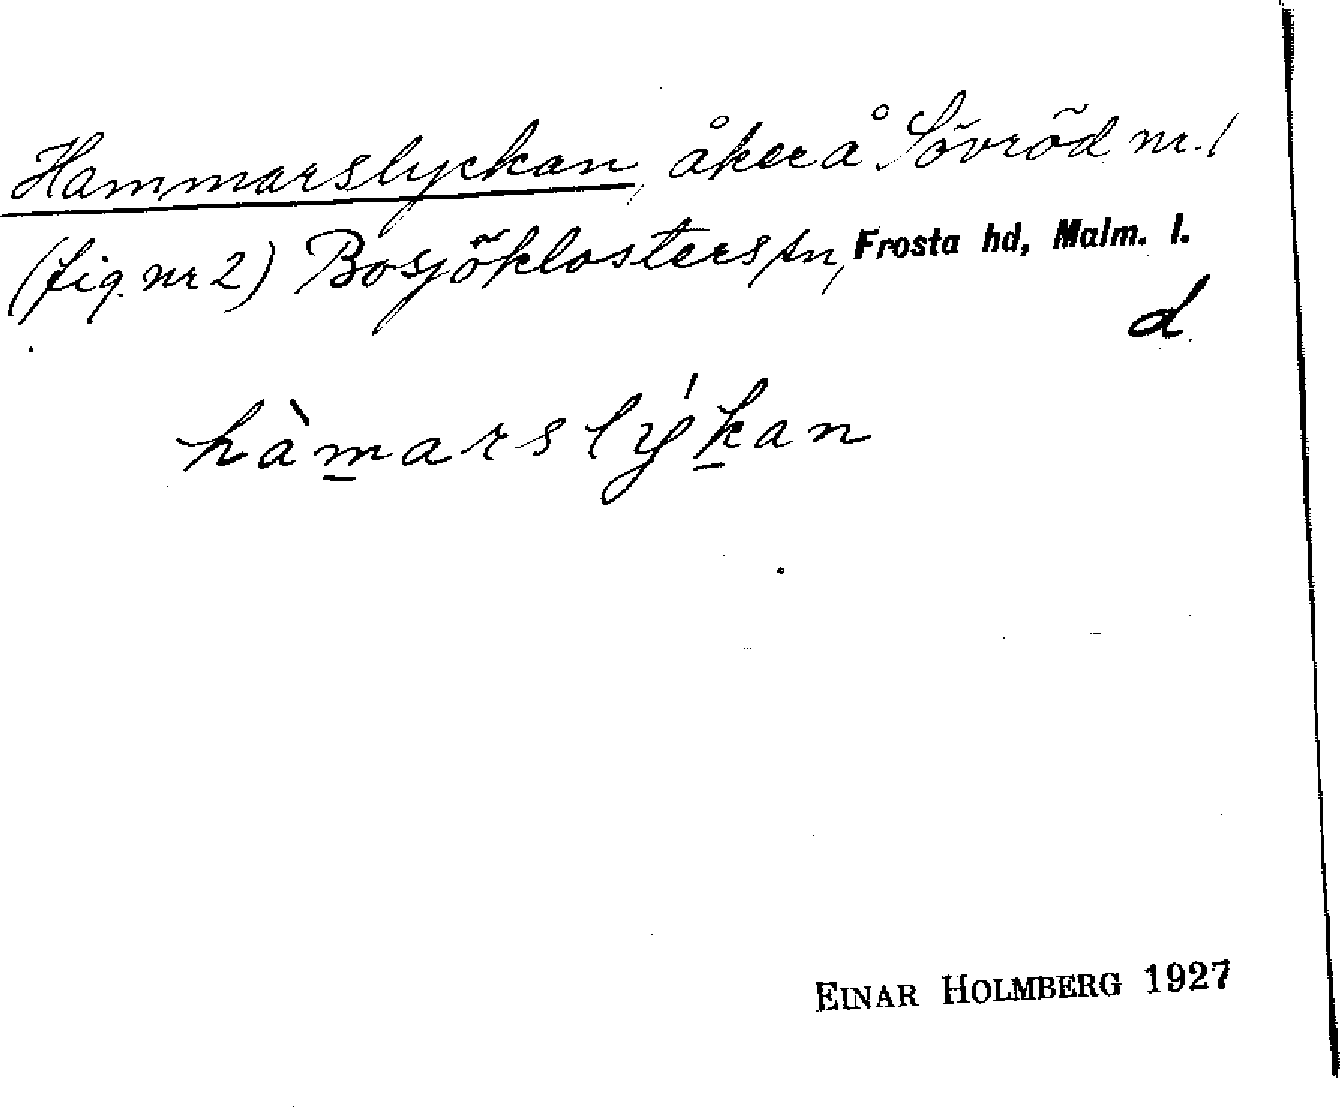 Hammarslyckan, åker å Sövröd nr. 1
(fig. nr 2) Bosjöklosters sn, Frosta hd, Malm. l.
d
hàmarslýkan
EINAR HOLMBERG 1927